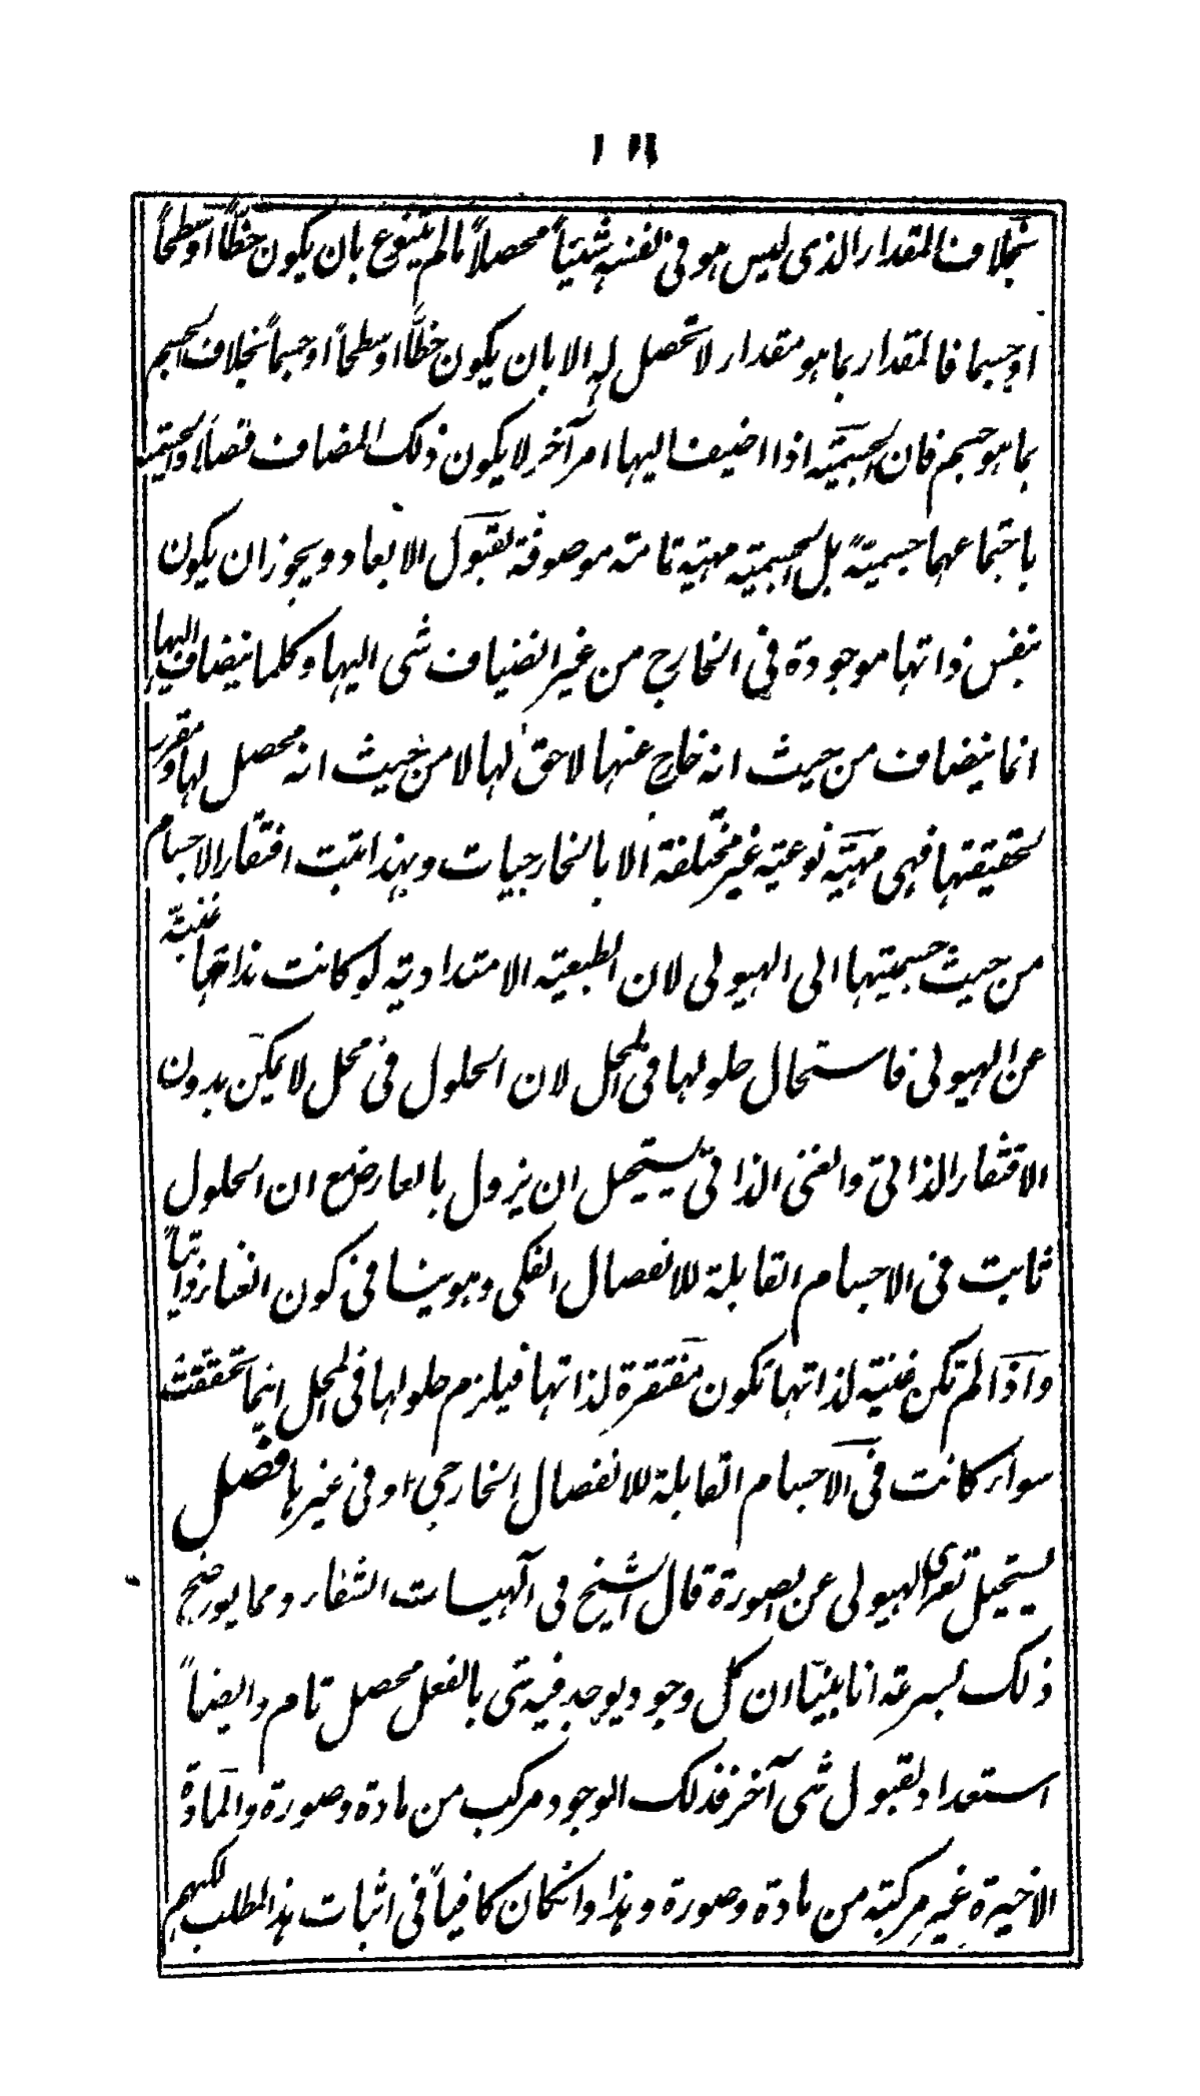 بخلاف المقدار الذى ليس هو فى نفسه شيئاً محصلاً مالم يتنوع بان يكون خطّاً او سطحاً
او جسما فالمقدار بما هو مقدار لا تحصل له الا بان يكون خطّاً او سطحاً او جسماً بخلاف الجسم
بما هو جسم فان الجسميّة اذا اضيف اليها امر آخر لا يكون ذلك المضاف فصلاً والجسمية
باجتماعهما جسميّةً بل الجسمية مهية تامة موصوفة بقبول الابعاد ويجوز ان يكون
بنفس ذاتها موجودة فى الخارج من غير انضياف شى اليها وكلما ينضاف اليها
انما ينضاف من حيث انه خارج عنها لاحق لها لا من حيث انه محصل لها ومقرر
لحقيقتها فهى مهيّة نوعية غير مختلفة الا بالخارجيات وبهذا يثبت افتقار الاجسام
من حيث جسميتها الى الهيولى لان الطبعية الامتدادية لو كانت بذاتها غنية
عن الهيولى فاستحال حلولها فى المحل لان الحلول فى محل لا يمكن بدون
الافتقار الذاتى والغنى الذاتى يستحيل ان يزول بالعارض مع ان الحلول
ثابت فى الاجسام القابلة للانفصال الفكى وهو ينافى كون الغناء ذاتياً
واذا لم تكن غنية لذاتها تكون مفتقرة لذاتها فيلزم حلولها فى المحل اينما تحققت
سواء كانت فى الاجسام القابلة للانفصال الخارجى او فى غيرها فصل
يستحيل تعرى الهيولى عن الصورة قال الشيخ فى آلهيات الشفاء ومما يوضح
ذلك بسرعة انا بيّنا ان كل وجود يوجد فيه شى بالفعل محصل تام وايضاً
استعداد لقبول شى آخر فذلك الوجود مركب من مادة وصورة والمادة
الاخيرة غير مركبة من مادة وصورة وهذا وانكان كافياً فى اثبات هذا المطلب لكنهم